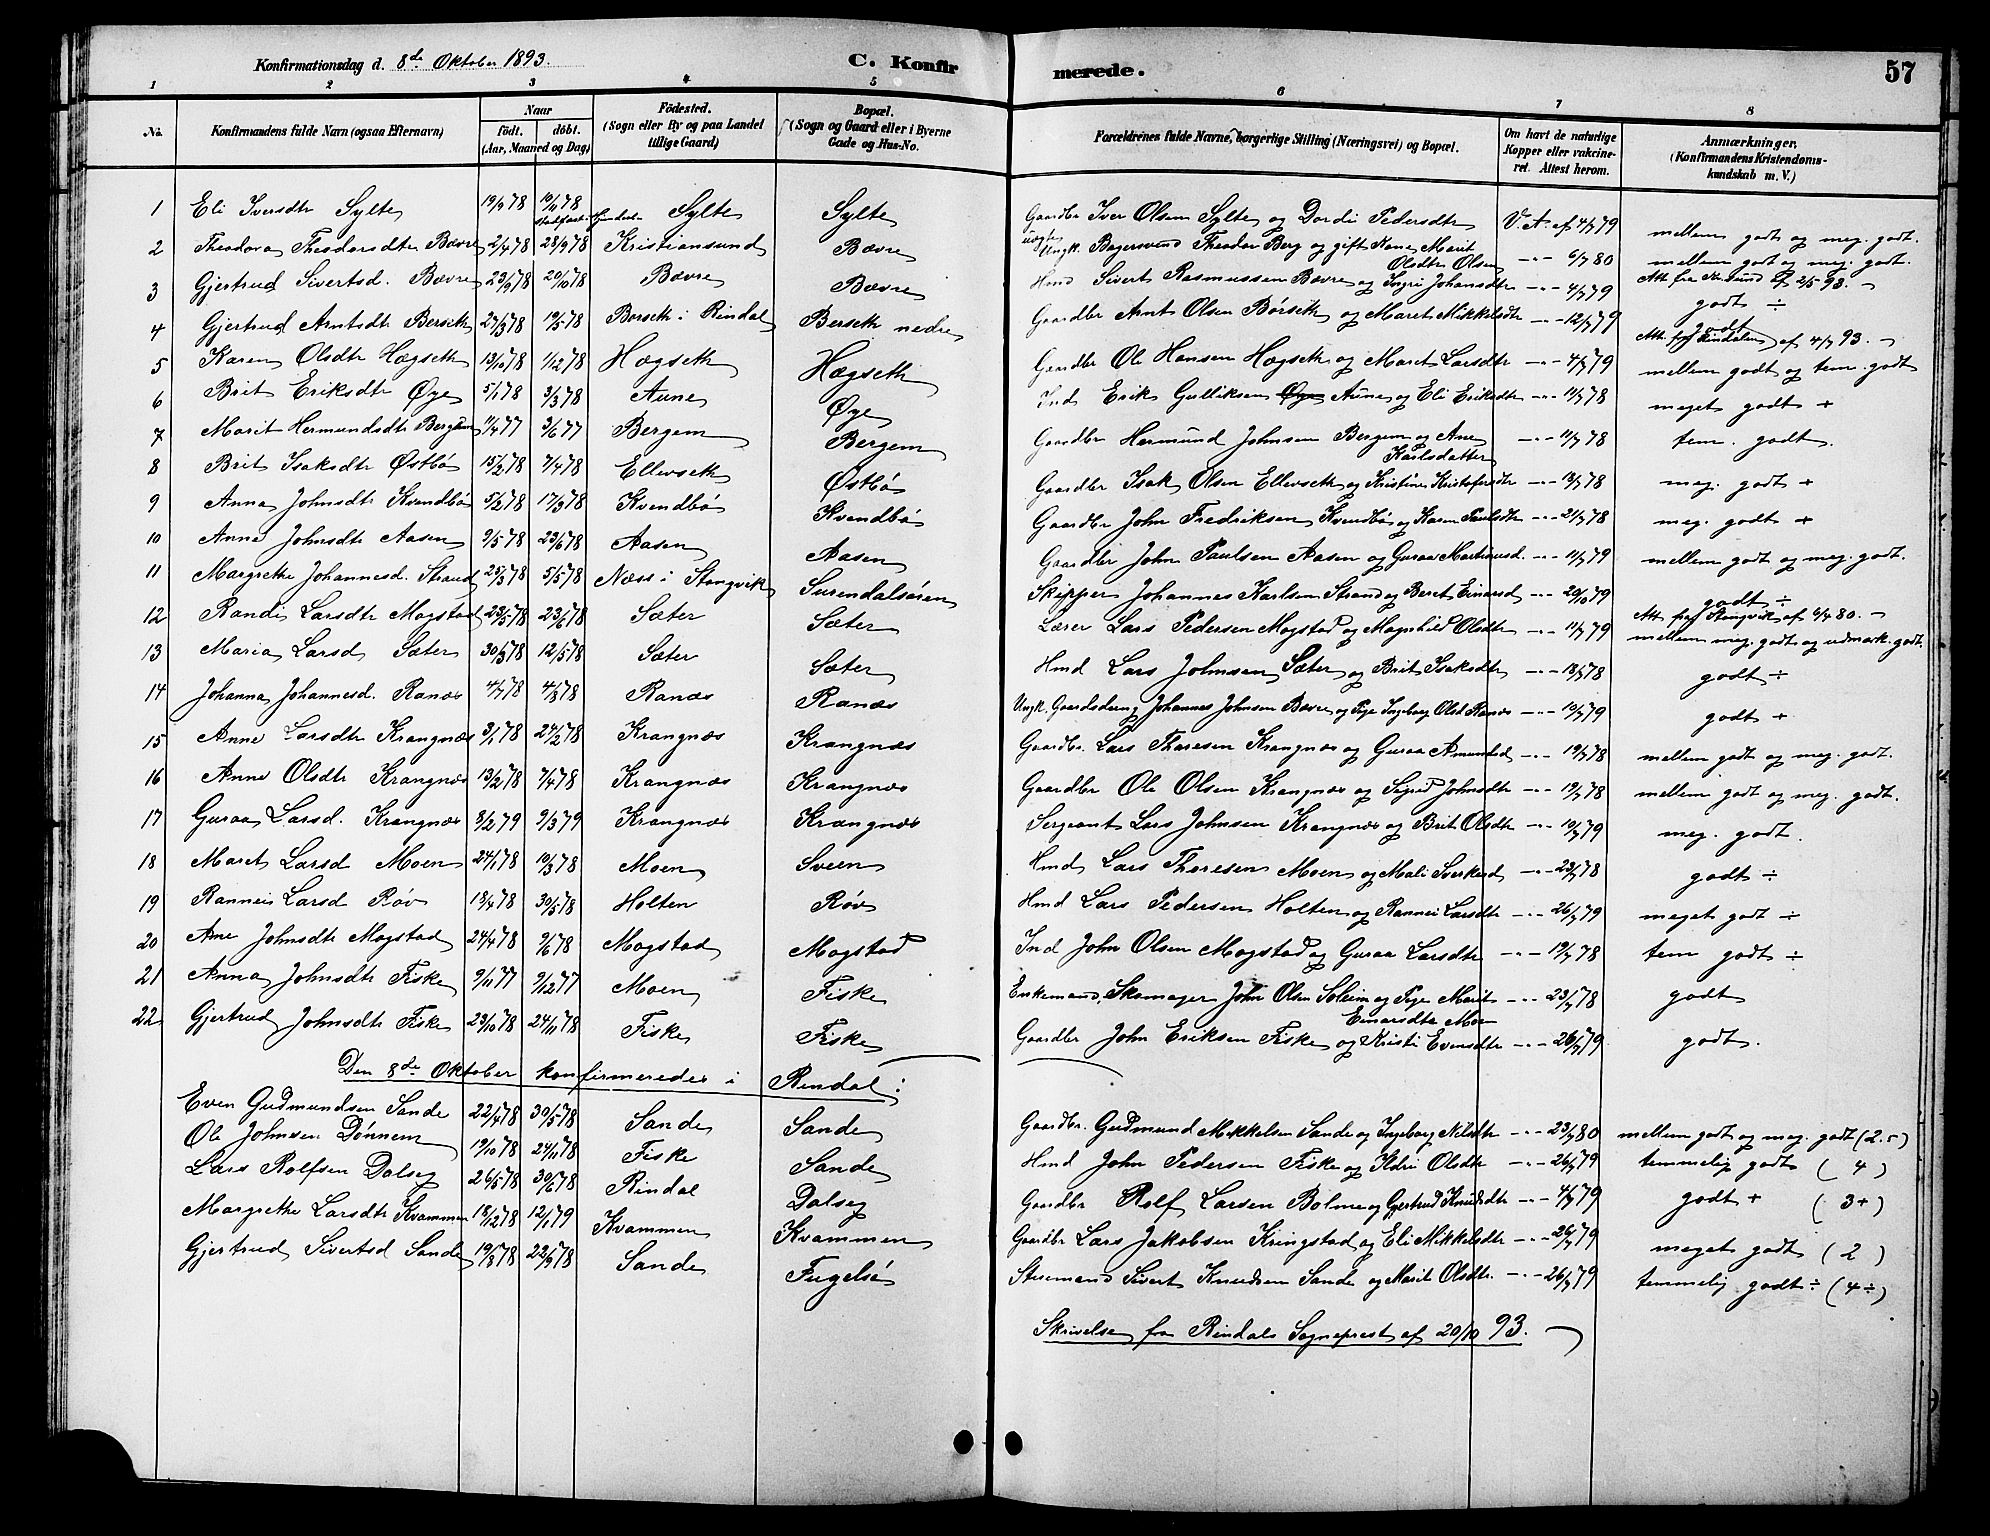 Konfirmationsdag d. 8de Oktober 1893.
C. Konfirmerede.
57
1 2 3 4 5 6 7 8
No.
Konfirmandens fulde Navn (ogsaa Efternavn)
Naar
födt. döbt.
(Aar, Maaned og Dag)
Födested.
(Sogn eller By og paa Landet
tillige Gaard)
Bopæl.
(Sogn og Gaard eller i Byerne
Gade og Hus-No.
Forældrenes fulde Navne, borgerlige Stilling (Næringsvei) og Bopæl.
Om havt de naturlige
Kopper eller vakcine-
ret. Attest herom.
Anmærkninger.
(Konfirmandens Kristendoms-
kundskab m. V.)
1 Eli Iversdtr Sylte 19/9 78 10/11 78 Sylte Sylte Gaardbr Iver Olsen Sylte og Dordi Pedersdtr V. A. af 4/7 79 mellem godt og meg. godt.
2 Theodora Theodorsdtr Bævre 2/9 78 28/9 78 Kristiansund Bævre Ungk. Theodor Berg og gift Kone Marit Olsdtr Olsen -"- 6/7 80 mellem godt og meg. godt.
Att. fra Krsund af 2/5 93.
3 Gjertrud Sivertsd. Bævre 23/9 78 20/10 78 Bævre Bævre Hmd Sivert Rasmussen Bævre og Ingri Johansdtr -"- 4/7 79 godt ÷
4 Gjertrud Arntsdtr Berseth 27/3 78 19/5 78 Börseth i Rindal Berseth nedre Gaardbr Arnt Olsen Börseth og Maret Mikkelsdtr -"- 12/7 79 godt
Att. fra Rindalen af 4/7 93.
5 Karen Olsdtr Hægseth 13/10 78 1/12 78 Hægseth Hægseth Gaardbr Ole Hansen Hægseth og Maret Larsdtr -"- 4/7 79 mellem godt og tem. godt
6 Brit Eriksdtr Øye 5/1 78 3/3 78 Aune Øye Ind Erik Gulliksen Øye Aune og Eli Eriksdtr -"- 11/7 78 meget godt +
7 Marit Hermundsdtr Bergem 11/4 77 3/6 77 Bergem Bergem Gaardbr Hermund Johnsen Bergem og Ane Karlsdatter -"- 11/7 78 tem. godt.
8 Brit Isaksdtr Østbö 15/2 78 7/4 78 Ellevseth Østbö Gaardbr Isak Olsen Ellevseth og Kristine Kristofersdtr -"- 13/7 78 meg. godt +
9 Anna Johnsdtr Kvendbö 5/2 78 17/3 78 Kvendbö Kvendbö Gaardbr John Fredriksen Kvendbö og Karen Paulsdtr -"- 21/7 78 meg. godt +
10 Anne Johnsdtr Aasen 9/5 78 23/6 78 Aasen Aasen Gaardbr John Paulsen Aasen og Guraa -"- 11/7 79 mellem godt og meg. godt.
11 Margrethe Johannesd. Strand 25/3 78 5/5 78 Næss i Stangvik Surendalsören Skipper Johannes Karlsen Strand og Beret Einarsd -"- 20/10 79 godt ÷
Att. fra Stangvik af 6/7 80.
12 Randi Larsdtr Mogstad 22/5 78 23/6 78 Sæter Sæter Lærer Lars Pedersen Mogstad og Magnhild Olsdtr -"- 11/7 79 mellem meg. godt og udmærk. godt.
13 Maria Larsd Sæter 30/3 78 12/5 78 Sæter Sæter Hmd Lars Johnsen Sæter og Brit Isaksdtr -"- 18/7 78 godt ÷
14 Johanna Johannesd. Ranæs 4/7 78 4/8 78 Ranæs Ranæs Ungk. Gaardsdreng Johannes Johnsen Bævre og Pige Ingeborg Olsd Ranæs -"- 10/7 79 godt +
15 Anne Larsdtr Krangnæs 3/1 78 24/2 78 Krangnæs Krangnæs Gaardbr. Lars Thoresen Krangnæs og Guraa Amundsd -"- 19/7 78 mellem godt og meg. godt.
16 Anne Olsdtr Krangnæs 13/2 78 7/4 78 Krangnæs Krangnæs Gaardbr Ole Olsen Krangnæs og Sigrid Johnsdtr -"- 19/7 78 mellem godt og meg. godt.
17 Guraa Larsd. Krangnæs 8/2 79 9/3 79 Krangnæs Krangnæs Sergeant Lars Johnsen Krangnæs og Brit Olsdtr -"- 10/7 79 meg. godt.
18 Maret Larsd Moen 24/1 78 10/3 78 Moen Sveen Hmd Lars Thoresen Moen og Mali Sverkesd -"- 23/7 78 godt ÷
19 Rannei Larsd Röv 13/4 78 30/5 78 Holten Röv Hmd Lars Pedersen Holten og Rannei Larsdtr -"- 26/7 79 meget godt ÷
20 Ane Johnsdtr Mogstad 24/4 78 9/6 78 Mogstad Mogstad Ind John Olsen Mogstad og Guraa Larsdtr -"- 19/7 78 tem godt ÷
21 Anna Johnsdtr Fiske 9/11 77 9/12 77 Moen Fiske Enkemand, Skomager John Olsen Soleim og Pige Marit Einarsdtr Moen -"- 23/7 78 godt
22 Gjertrud Johnsdtr Fiske 23/10 78 24/11 78 Fiske Fiske Gaardbr John Eriksen Fiske og Kristi Evensdtr -"- 26/7 79 godt.
Den 8de Oktober konfirmeredes i Rindal:
Even Gudmundsen Sande 22/4 78 30/5 78 Sande Sande Gaardbr. Gudmund Mikkelsen Sande og Ingeborg Nilsdtr -"- 23/7 80 mellem godt og meg. godt (2.5)
Ole Johnsen Dønnem 19/10 78 24/11 78 Fiske Sande Hmd John Pedersen Fiske og Ildri Olsdtr -"- 26/7 79 temmelig godt (4)
Lars Rolfsen Dalseg 26/5 78 30/6 78 Rindal Dalseg Gaardbr Rolf Larsen Bolme og Gjertrud Knudsdtr -"- 4/7 79 godt + (3+)
Margrethe Larsdtr Kvammen 18/12 78 12/1 79 Kvammen Kvammen Gaardbr Lars Jakobsen Kringstad og Eli Mikkelsdtr -"- 26/7 79 meget godt (2)
Gjertrud Sivertsd Sande 19/8 78 22/9 78 Sande Fugelsö Sivert Knudsen Sande og Marit Olsdtr. -"- 26/7 79 temmelig godt ÷ (4÷)
Skrivelse fra Rindals Sogneprest af 20/10 93.